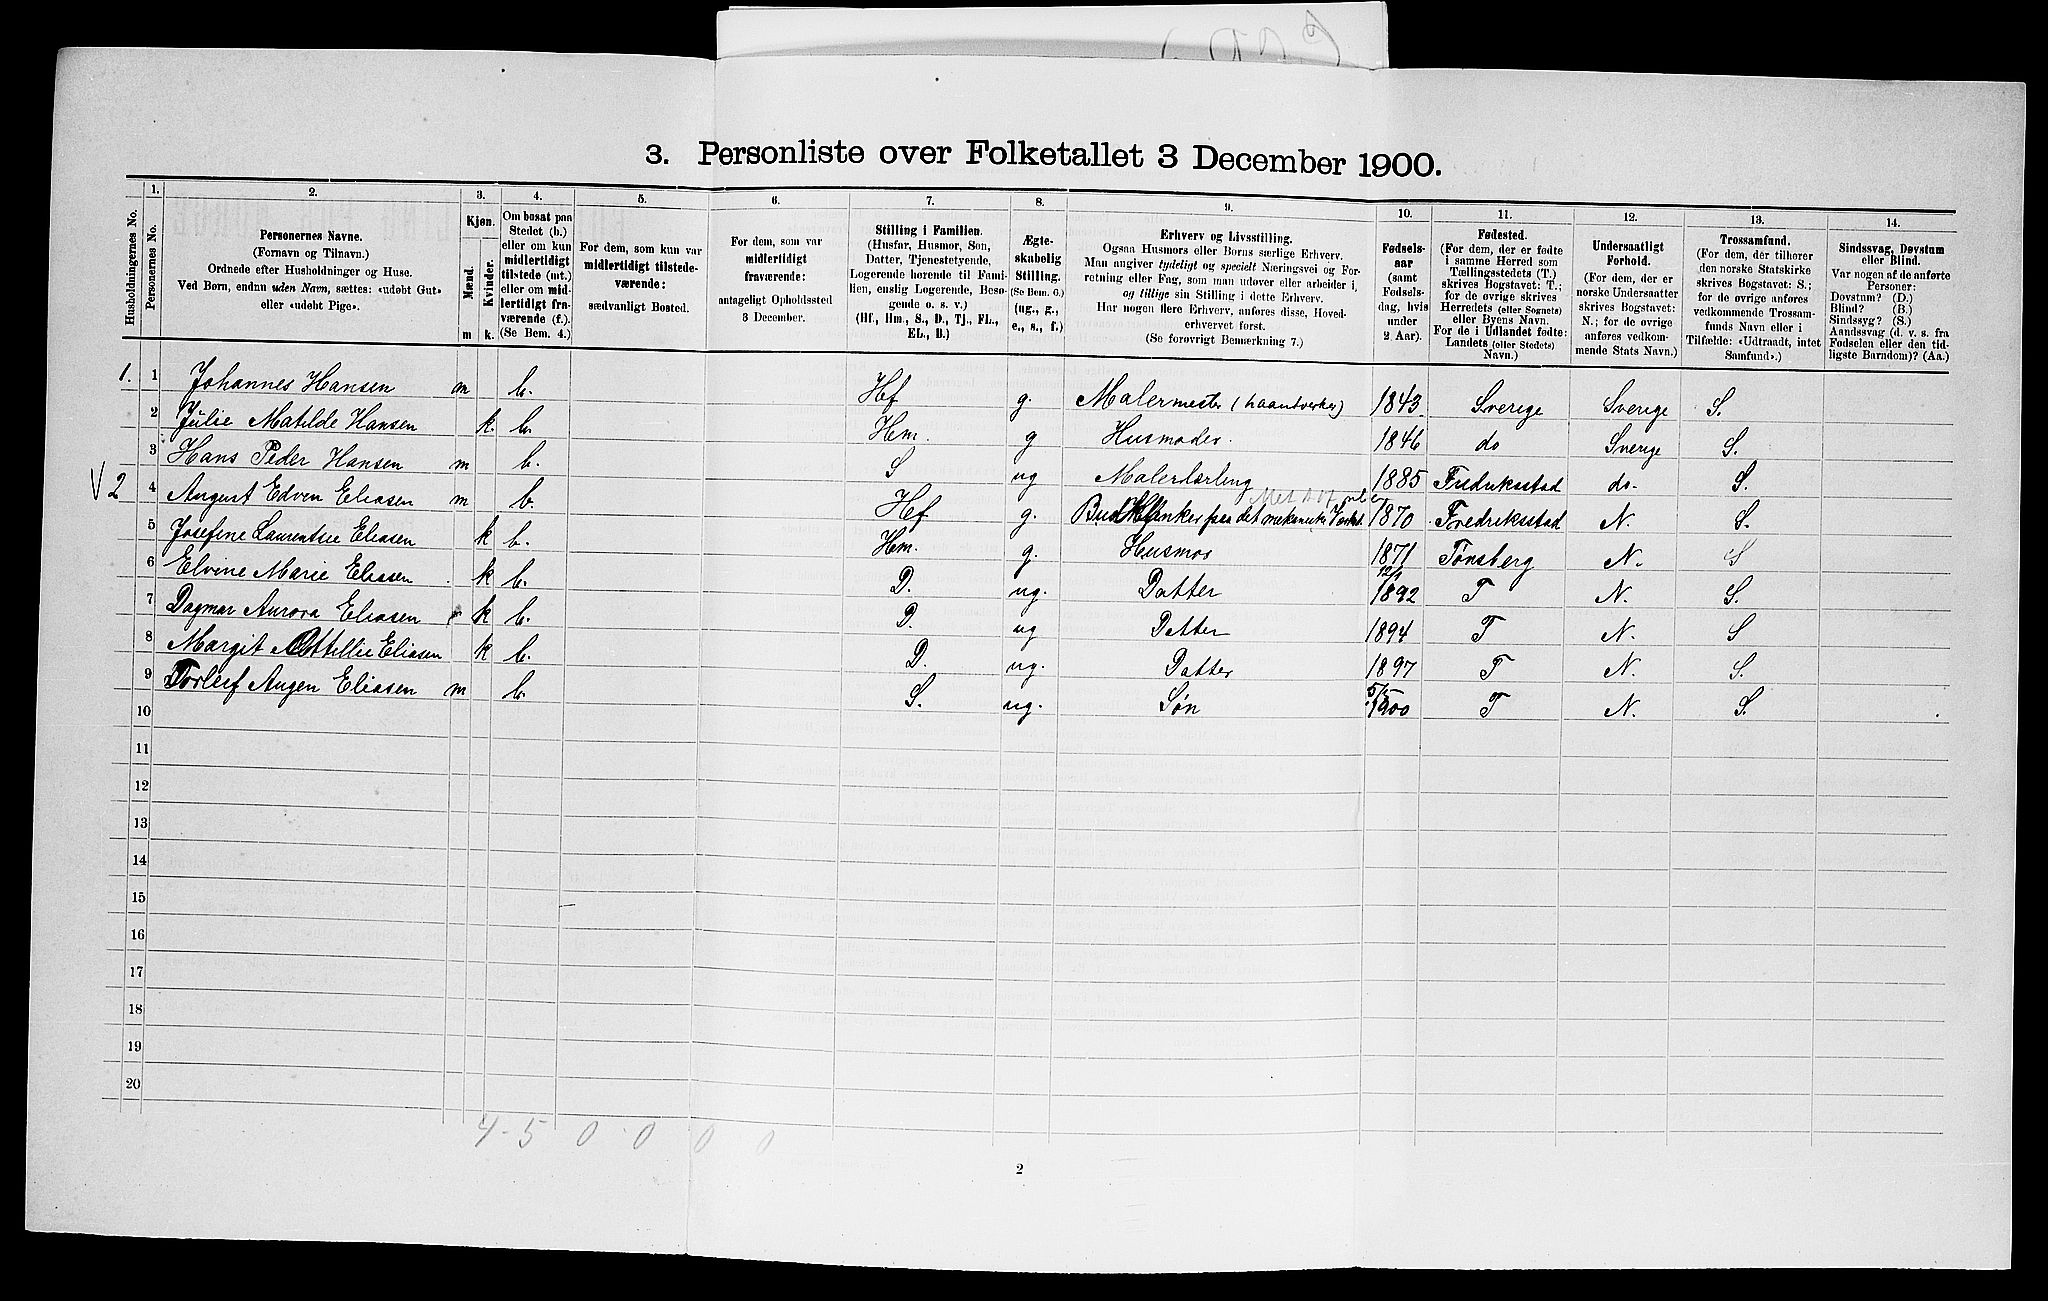 3. Personliste over Folketallet 3 December 1900.
Husholdningernes No.
1. Personernes No.
2. Personernes Navne.
(Fornavn og Tilnavn.)
Ordnede efter Husholdninger og Huse.
Ved Børn, endnu uden Navn, sættes: «udøbt Gut»
eller «udøbt Pige».
3. Kjøn.
Mænd. Kvinder.
m k.
4. Om bosat paa
Stedet (b.)
eller om kun
midlertidigt
tilstede (mt.)
eller om mid-
lertidigt fra-
værende (f.).
(Se Bem. 4.)
5. For dem, som kun var
midlertidigt tilstede-
værende:
sædvanligt Bosted.
6. For dem, som var
midlertidigt
fraværende:
antageligt Opholdssted
3 December.
7. Stilling i Familien.
(Husfar, Husmor, Søn,
Datter, Tjenestetyende,
Logerende hørende til Fami-
lien, enslig Logerende, Besø-
gende o. s. v.)
(Hf., Hm., S., D., Tj., FL.,
EL., B.)
8. Ægte-
skabelig
Stilling.
(Se Bem. 6.)
(ug., g.,
e., s., f.)
9. Erhverv og Livsstilling.
Ogsaa Husmors eller Børns særlige Erhverv.
Man angiver tydeligt og specielt Næringsvei og For-
retning eller Fag, som man udøver eller arbeider i,
og tillige sin Stilling i dette Erhverv.
Har nogen flere Erhverv, anføres disse, Hoved-
erhvervet først.
(Se forøvrigt Bemærkning 7.)
10. Fødsels-
aar
(samt
Fødsels-
dag, hvis
under
2 Aar).
11. Fødested.
(For dem, der er fødte
i samme Herred som
Tællingsstedets (T.)
skrives Bogstavet: T.;
for de øvrige skrives
Herredets (eller Sognets)
eller Byens Navn.
For de i Udlandet fødte:
Landets (eller Stedets)
Navn.)
12. Undersaatligt
Forhold.
(For dem, der er
norske Undersaatter
skrives Bogstavet:
N.; for de øvrige
anføres vedkom-
mende Stats Navn.)
13. Trossamfund.
(For dem, der tilhører
den norske Statskirke
skrives Bogstavet: S.;
for de øvrige anføres
vedkommende Trossam-
funds Navn eller i
Tilfælde: «Udtraadt, intet
Samfund».)
14. Sindssvag, Døvstum
eller Blind.
Var nogen af de anførte
Personer:
Døvstum? (D.)
Blind? (B.)
Sindssyg? (S.)
Aandssvag (d. v. s. fra
Fødselen eller den tid-
ligste Barndom)? (Aa.)
1. 1 Johannes Hansen m b. Hf g. Malermester (haandverker) 1843 Sverige Sverige S.
2 Julie Matilde Hansen k. b. Hm. g Husmoder. 1846 do Sverige S.
3 Hans Peder Hansen m b. S ug Malerlærling 1885 Fredriksstad do. S.
V 2 4 August Edvin Eliasen m b. Hf g. paa det mekaniske 1870 Fredriksstad N. S.
5 Josefine Laurentse Eliasen k b. Hm. g. Husmor 1871 Tønsberg N. S
6 Elvine Marie Eliasen k b. D. ug. Datter 1892 T N. S.
7 Dagmar Aurora Eliasen k b. D. ug Datter 1894 T N. S
8 Margit Ottillie Eliasen k b. D. ug. Datter 1897 T N. S.
9 Torleif Augen Eliasen m b. S. ug. Søn 5/5 1900 T N. S.
10
11
12
13
14
15
16
17
18
19
20
4 - 5 0 - 0 0 0
2